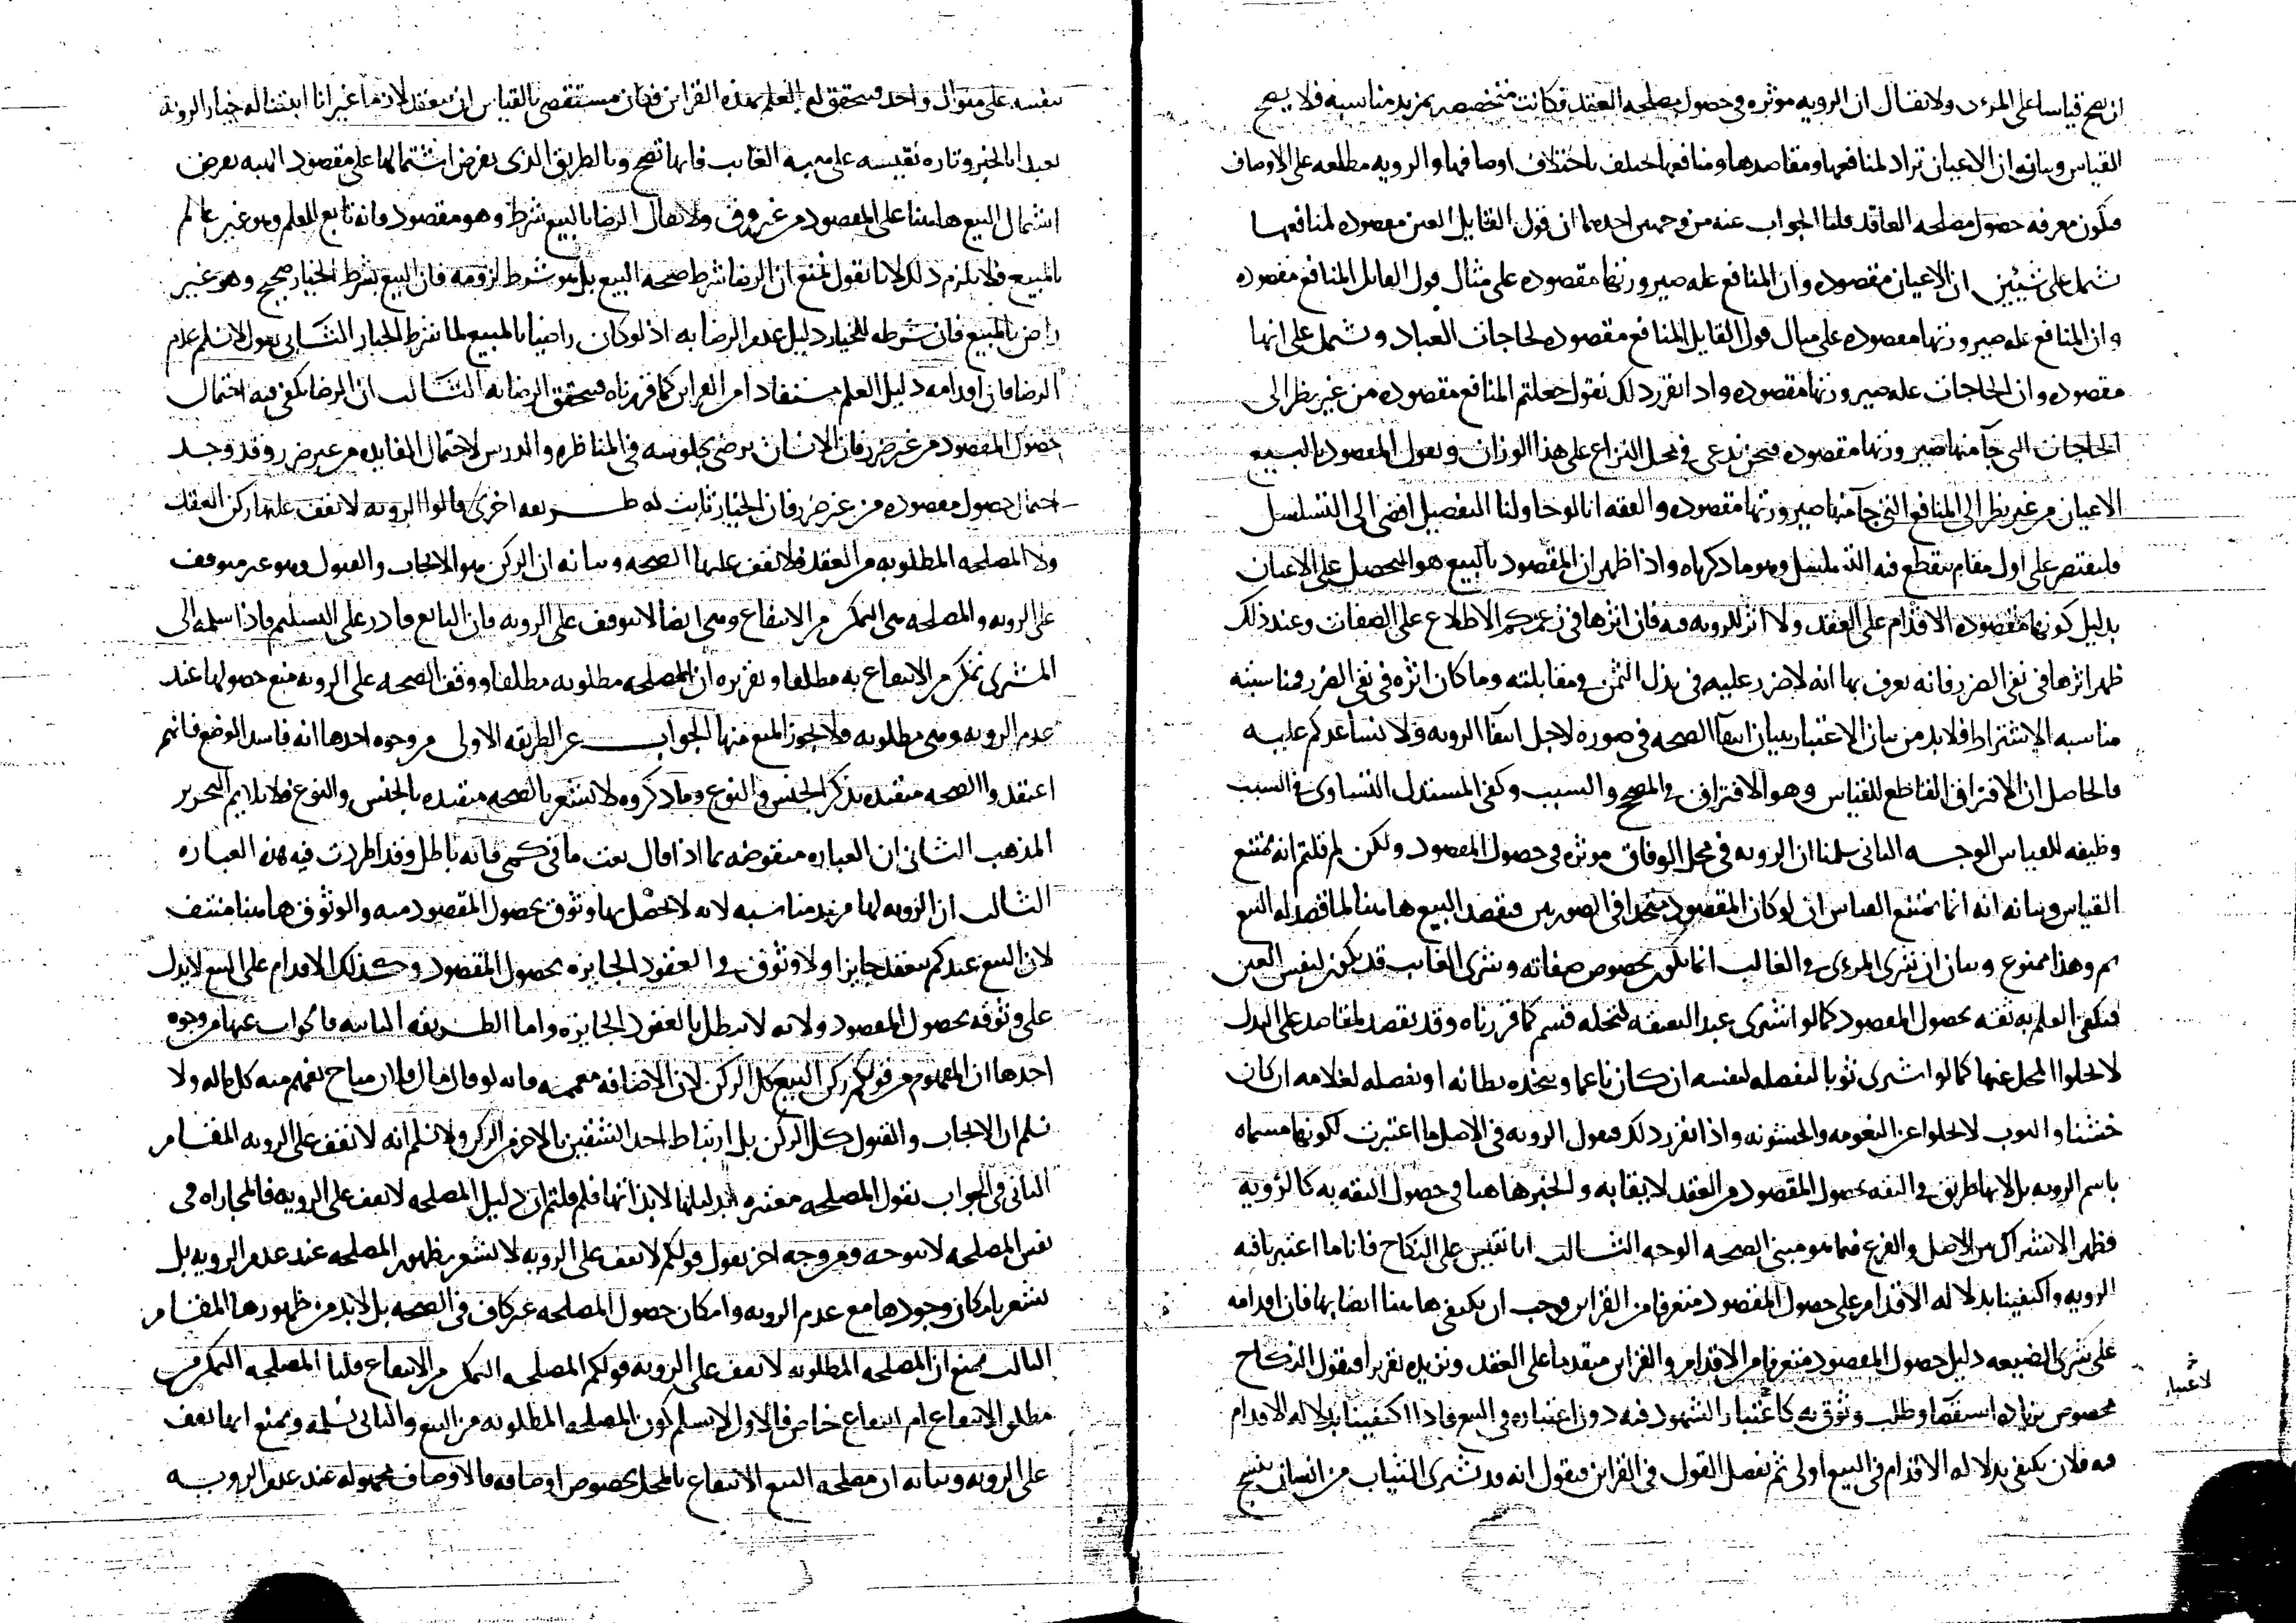 ان يصح قياسا على المرءى ولا يقال ان الرويه موثره فى حصول مصلحه العقد فكانت متخصصه بمزيد مناسبه فلا يصح
القياس وبيانه ان الاعيان تراد لمنافعها ومقاصدها ومنافعها تختلف باختلاف اوصافها والرويه مطلعه على الاوصاف
فتكون معرفه حصول مصلحه العاقد قلنا الجواب عنه من وجهين احدهما ان قول القايل العين مقصوده لمنافعها
تشمل على شيئين ان الاعيان مقصوده وان المنافع عله صيرورتها مقصوده على مثال قول القايل المنافع مقصوده
وان المنافع عله صيرورتها مقصوده على مثال قول القايل المنافع مقصوده لحاجات العباد وتشمل على انها
مقصوده وان الحاجات عله صيرورتها مقصوده واذا تقرر ذلك نقول جعلتم المنافع مقصوده من غير نظر الى
الحاجات التى جآ منها صيرورتها مقصوده فنحن ندعى فى محل النزاع على هذا الوزان ونقول المقصود بالبيع
الاعيان من غير نظر الى المنافع التى جآ منها صيرورتها مقصوده والفقه انا لو حاولنا التفصيل افضى الى التسلسل
فليقتصر على اول مقام ينقطع فيه التسلسل وهو ما ذكرناه واذا ظهر ان المقصود بالبيع هو التحصل على الاعيان
بدليل كونها مقصوده الاقدام على العقد ولا اثر للرويه فيه فان اثرها فى زعمكم الاطلاع على الصفات وعند ذلك
ظهر اثرها فى نفى الضرر فانه يعرف بها انه لا ضرر عليه فى بذل الثمن فى مقابلته وما كان اثره فى نفى الضرر فمناسبته
مناسبه الاشتراط فلا بد من بيان الاعتبار ببيان انتفآ الصحه فى صوره لاجل انتفآ الرويه ولا نساعدكم عليه
فالحاصل ان الافتراق القاطع للقياس وهو الافتراق فى المصحح والسبب وكفى المستدل التساوى فى السبب
وظيفه للقياس الوجه الثانى سلمنا ان الرويه فى محل الوفاق موثره فى حصول المقصود ولكن لم قلتم انه يمتنع
القياس وبيانه انه انما يمتنع القياس ان لو كان المقصود متحدا فى الصورتين فيقصد البيع هاهنا لما قصد له البيع
ثم وهذا ممنوع وبيانه ان شرى المرءى فى الغالب انما يكون بخصوص صفاته وشرى الغايب قد يكون لنفس العين
فيكفى العلم به ثقه بحصول المقصود كما لو اشترى عبد البعقه لنحله قسم كما قررناه وقد يقصد لمقاصد على البدل
لا يخلوا المحل عنها كما لو اشترى ثوبا ليفصله لنفسه ان كان ناعما ويتخذه بطانه او يفصله لغلامه ان كان
خشنا والثوب لا يخلوا عن النعومه والخشونه واذا تقرر ذلك فنقول الرويه فى الاصل ما اعتبرت لكونها مسماه
باسم الرويه بل لانها طريق فى الثقه بحصول المقصود من العقد لا بقا به والخبر هاهنا فى حصول الثقه به كالرؤيه
فظهر الاشتراك بين الاصل والفرع فيما هو مبنى الصحه الوجه الثالث انا نقيس على النكاح فانا ما اعتبرنا فيه
الرويه واكتفينا بدلاله الاقدام على حصول المقصود متعرفا من القراين فوجب ان يكتفى هاهنا ايضا بها فان اقدامه
على شرى الضيعه دليل حصول المقصود متعرفا من الاقدام والقراين متقدما على العقد ونزيده تقريرا فنقول النكاح
مخصوص بزياده استقصا وطلب وثوق به كاعتبار الشهود فيه دون اعتباره فى البيع فاذا اكتفينا بدلاله الاقدام
فيه فلان يكتفى بدلاله الاقدام فى البيع اولى ثم نفصل القول فى القراين فنقول انه قد يشترى الثياب من انسان ينسج
لاعتبار
بنفسه على منوال واحد فيتحقق له العلم بهذه القراين فكان مستقصى بالقياس ان ينعقد لازما غير انا اثبتنا له خيار الرويه
تعبدا بالخبر وتاره نقيسه على هبه الغايب فانها تصح وبالطريق الذى يعرض اشتمالها على مقصود الهبه يعرض
اشتمال البيع هاهنا على المقصود من غير فرق ولا يقال الرضا بالبيع شرط وهو مقصود فانه تابع للعلم وهو غير عالم
بالمبيع فلا يلزم ذلك لانا نقول نمنع ان الرضا شرط صحه البيع بل هو شرط لزومه فان البيع بشرط الخيار صحيح وهو غير
راض بالمبيع فان شرطه للخيار دليل عدم الرضا به اذ لو كان راضيا بالمبيع لما شرط الخيار الثانى نقول لا نسلم عدم
الرضا فان اقدامه دليل العلم مستفادا من القراين كما قررناه فيتحقق الرضا به الثالث ان الرضا يكفى فيه احتمال
حصول المقصود من غير ضرر فان الانسان يرضى بجلوسه فى المناظره والدرس لاحتمال الفايده من غير ضرر وقد وجد
احتمال حصول مقصوده من غير ضرر فان الخيار ثابت له طريقه اخرى قالوا الرويه لا يقف عليها ركن العقد
ولا المصلحه المطلوبه من العقد فلا يقف عليها الصحه وبيانه ان الركن هو الايجاب والقبول وهو غير متوقف
على الرويه والمصلحه هى التمكن من الانتفاع وهى ايضا لا تتوقف على الرويه فان البايع قادر على التسليم فاذا سلمه الى
المشترى تمكن من الانتفاع به مطلقا وتقريره ان المصلحه مطلوبه مطلقا ووقف الصحه على الرويه منع حصولها عند
عدم الرويه وهى مطلوبه فلا يجوز المنع منها الجواب عن الطريقه الاولى من وجوه احدها انه فاسد الوضع فانهم
اعتقدوا الصحه مقيده بذكر الجنس والنوع وما ذكروه لا يشعر بالصحه مقيده بالجنس والنوع فلا يلايم التحرير
المذهب الثانى ان العباره منقوضه بما اذا قال بعت ما فى كمى فانه باطل وقد اطردت فيه هذه العباره
الثالث ان الرويه لها مزيد مناسبه لانه لا يحصل بها وثوق بحصول المقصود منه والوثوق هاهنا منتف
لان البيع عندكم ينعقد جايزا ولا وثوق فى العقود الجايزه بحصول المقصود وكذلك الاقدام على البيع لا يدل
على وثوقه بحصول المقصود ولانه لا يبطل بالعقود الجايزه واما الطريقه الثانيه فالجواب عنها من وجوه
احدها ان المفهوم من قولكم ركن البيع كل الركن لان الاضافه معممه فانه لو قال مال فلان مباح يفهم منه كل ماله ولا
نسلم ان الايجاب والقبول كل الركن بل ارتباط احد الشقين بالاخر من الركن ولا نسلم انه لا يقف على الرويه المقام
الثانى فى الجواب نقول المصلحه معتبره بدليلها لا بذاتها فلم قلتم ان دليل المصلحه لا يقف على الرويه فالمجاراه فى
نفس المصلحه لا تتوجه ومن وجه اخر نقول قولكم لا يقف على الرويه لا يشعر بظهور المصلحه عند عدم الرويه بل
يشعر بامكان وجودها مع عدم الرويه وامكان حصول المصلحه غير كاف فى الصحه بل لا بد من ظهورها المقام
الثالث نمنع ان المصلحه المطلوبه لا تقف على الرويه قولكم المصلحه التمكن من الانتفاع قلنا المصلحه التمكن من
مطلق الانتفاع ام انتفاع خاص فالاول لا نسلم كون المصلحه المطلوبه من البيع والثانى نسلمه ونمنع انها تقف
على الرويه وبيانه ان مصلحه البيع الانتفاع بالمحل بخصوص اوصافه فالاوصاف مجهوله عند عدم الرويه